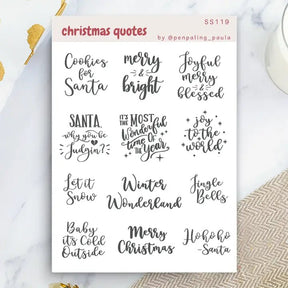 christmas quotes
SS119
by @penpaling_paula
Cookies
for
Santa
merry
&
bright
Joyful
merry
&
blessed
SANTA,
why you be
Judgin?
IT'S THE MOST
Wonderful
time OF
THE YEAR
joy
to the
world
Let it
Snow
Winter
Wonderland
Jingle
Bells
Baby
it's Cold
Outside
Merry
Christmas
Ho ho ho
-Santa